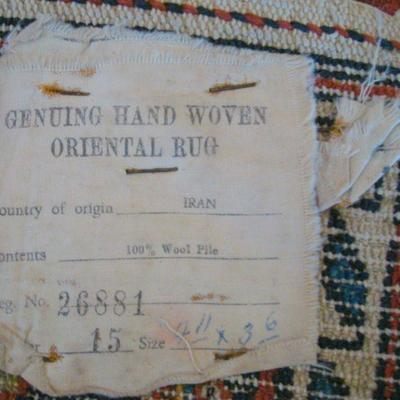 GENUING HAND WOVEN
ORIENTAL RUG
ountry of origin IRAN
ontents 100% Wool Pile
eg. No. 26881
15 Size 4 11 x 3 6